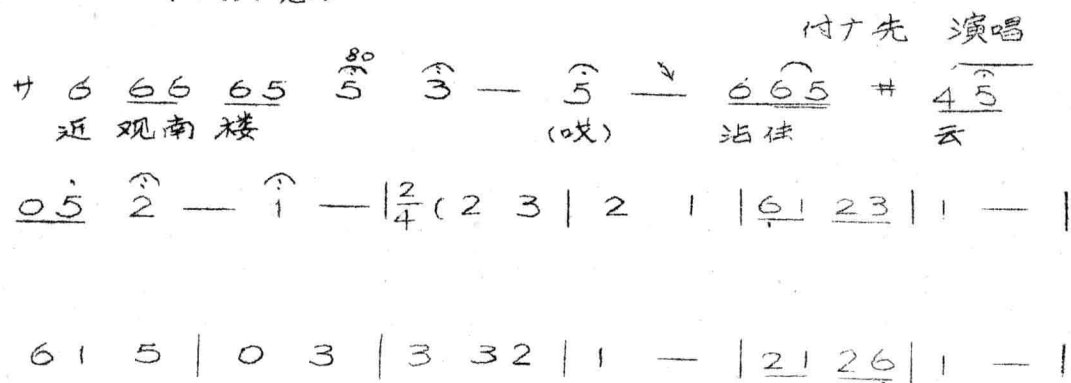 付广先 演唱
サ 6 66 65 5 3 — 5 — 665 # 45
近 观南 楼 (哎) 沾佳 云
05 2 — 1 — | 2/4 ( 2 3 | 2 1 | 61 23 | 1 — |
6 1 5 | 0 3 | 3 32 | 1 — | 21 26 | 1 — |